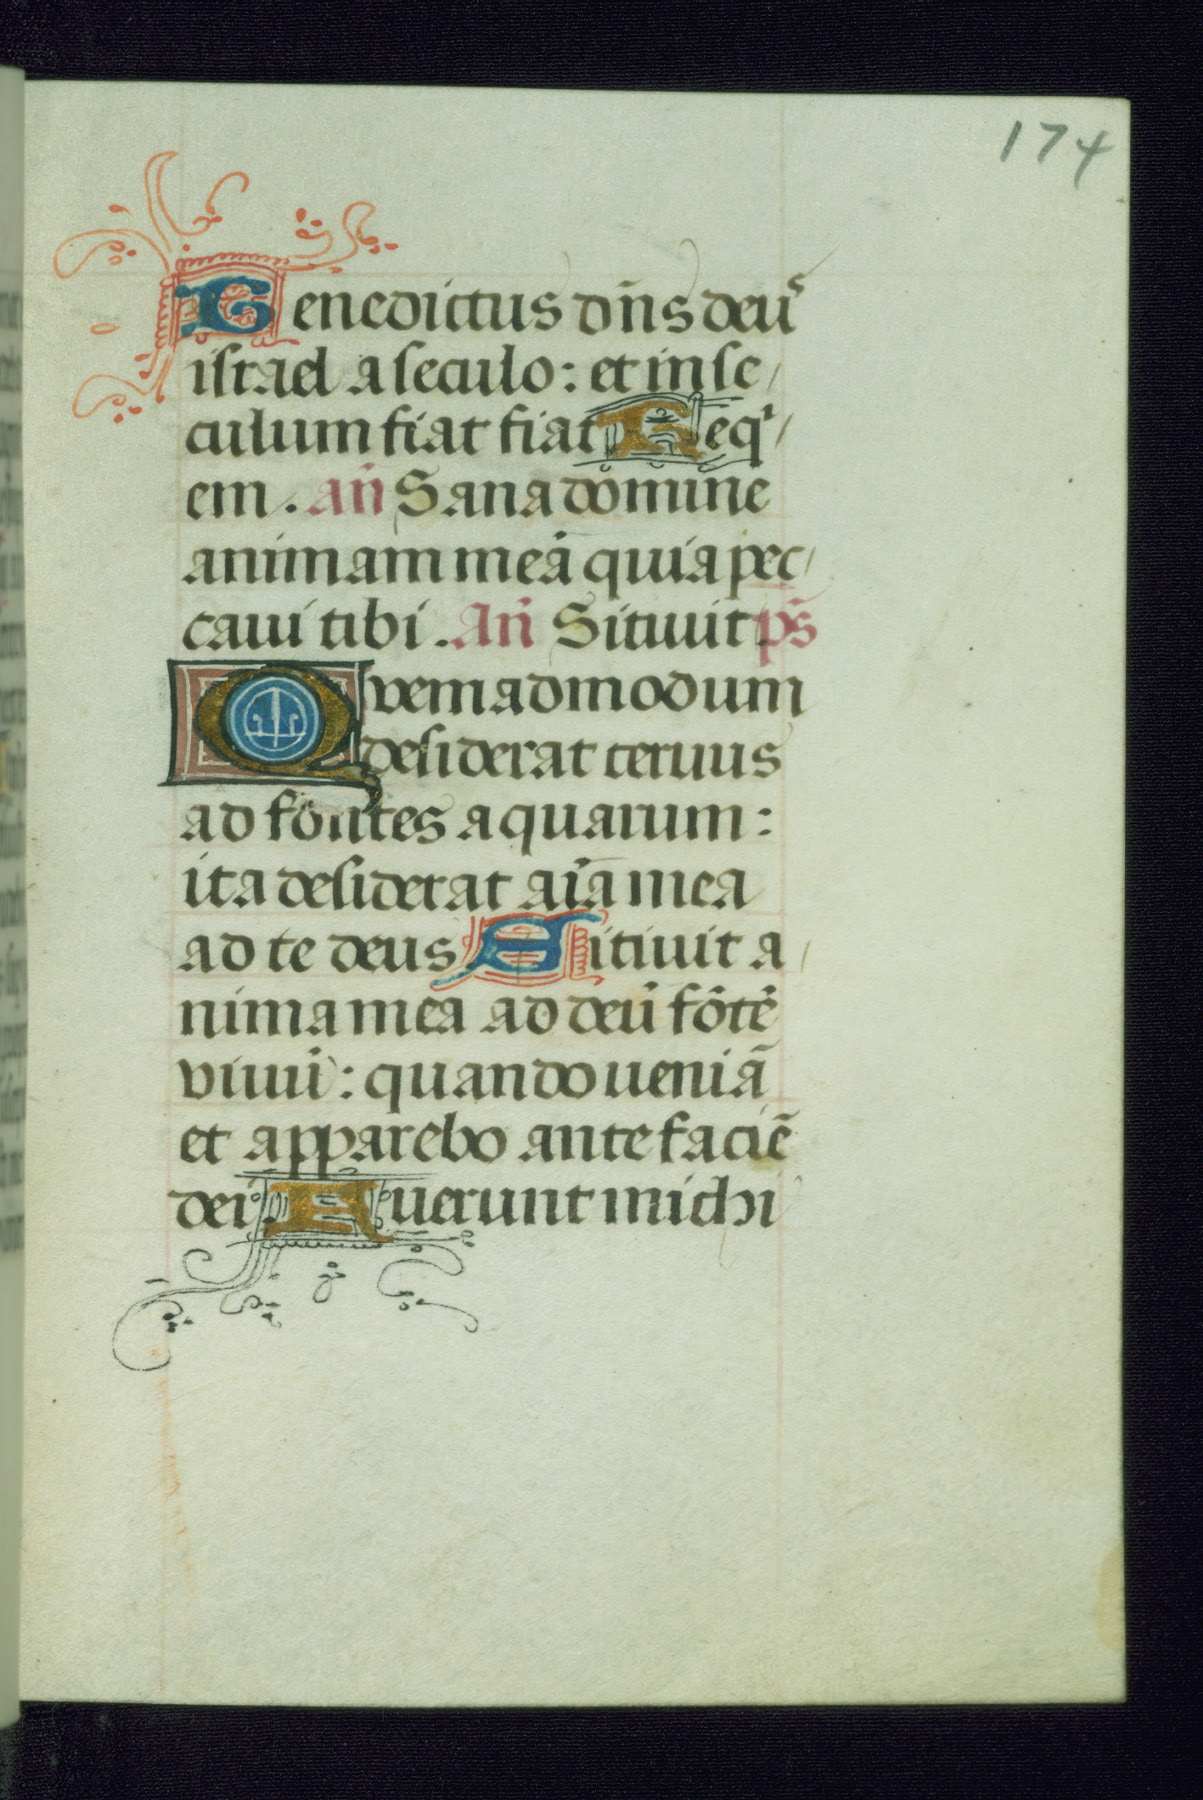 174
Benedictus dñs deus
israel a seculo: et in se/
culum fiat fiat Req̇/
em. añ Sana domine
animam meā quia pec/
caui tibi. Añ Sitiuit ps̄
Quemadmodum
desiderat ceruus
ad fontes aquarum:
ita desiderat aīa mea
ad te deus Sitiuit a/
nima mea ad deū fōtē
viuū: quando ueniā
et apparebo ante faciē
dei. Fuerunt michi